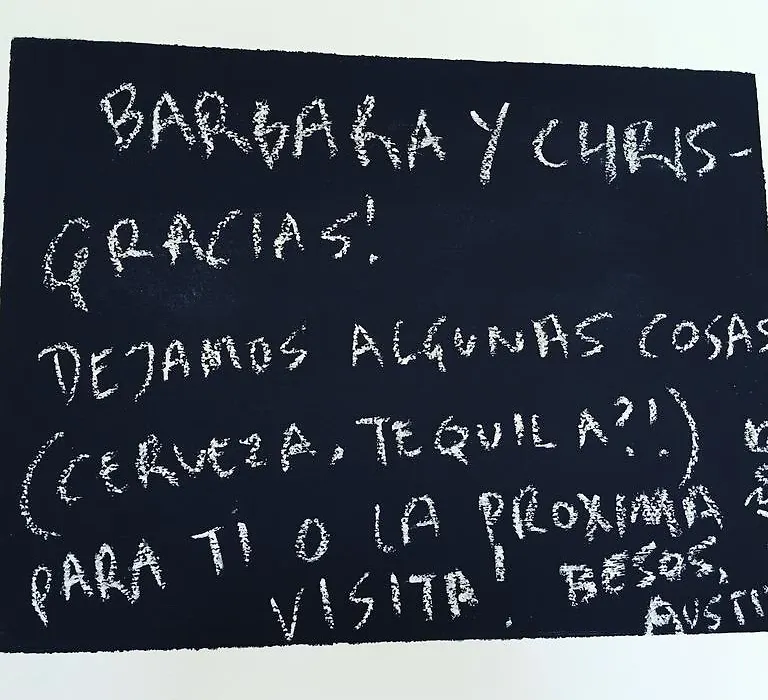 BARBARA Y CHRIS-
GRACIAS!
DEJAMOS ALGUNAS COSAS
(CERVEZA, TEQUILA?!)
PARA TI O LA PROXIMA
VISITA! BESOS,